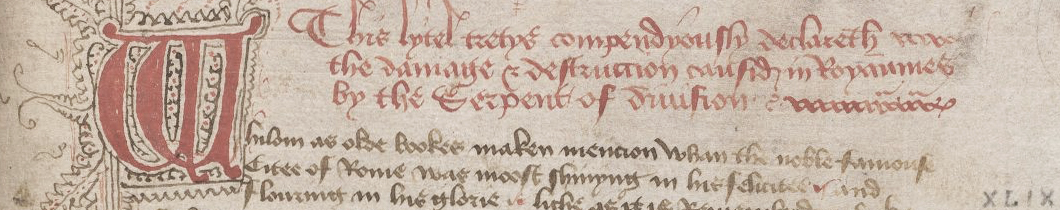 This lytel tretys compendyously declareth
the damage & destruccion causid in Royaumes
by the Serpent of diuision
Whilom as olde bookes maken mencion whan the noble famouse
Citee of Rome was moost shynyng in his felicitee and
Flouring in his glorie liche as it is Remembrid
XLIX